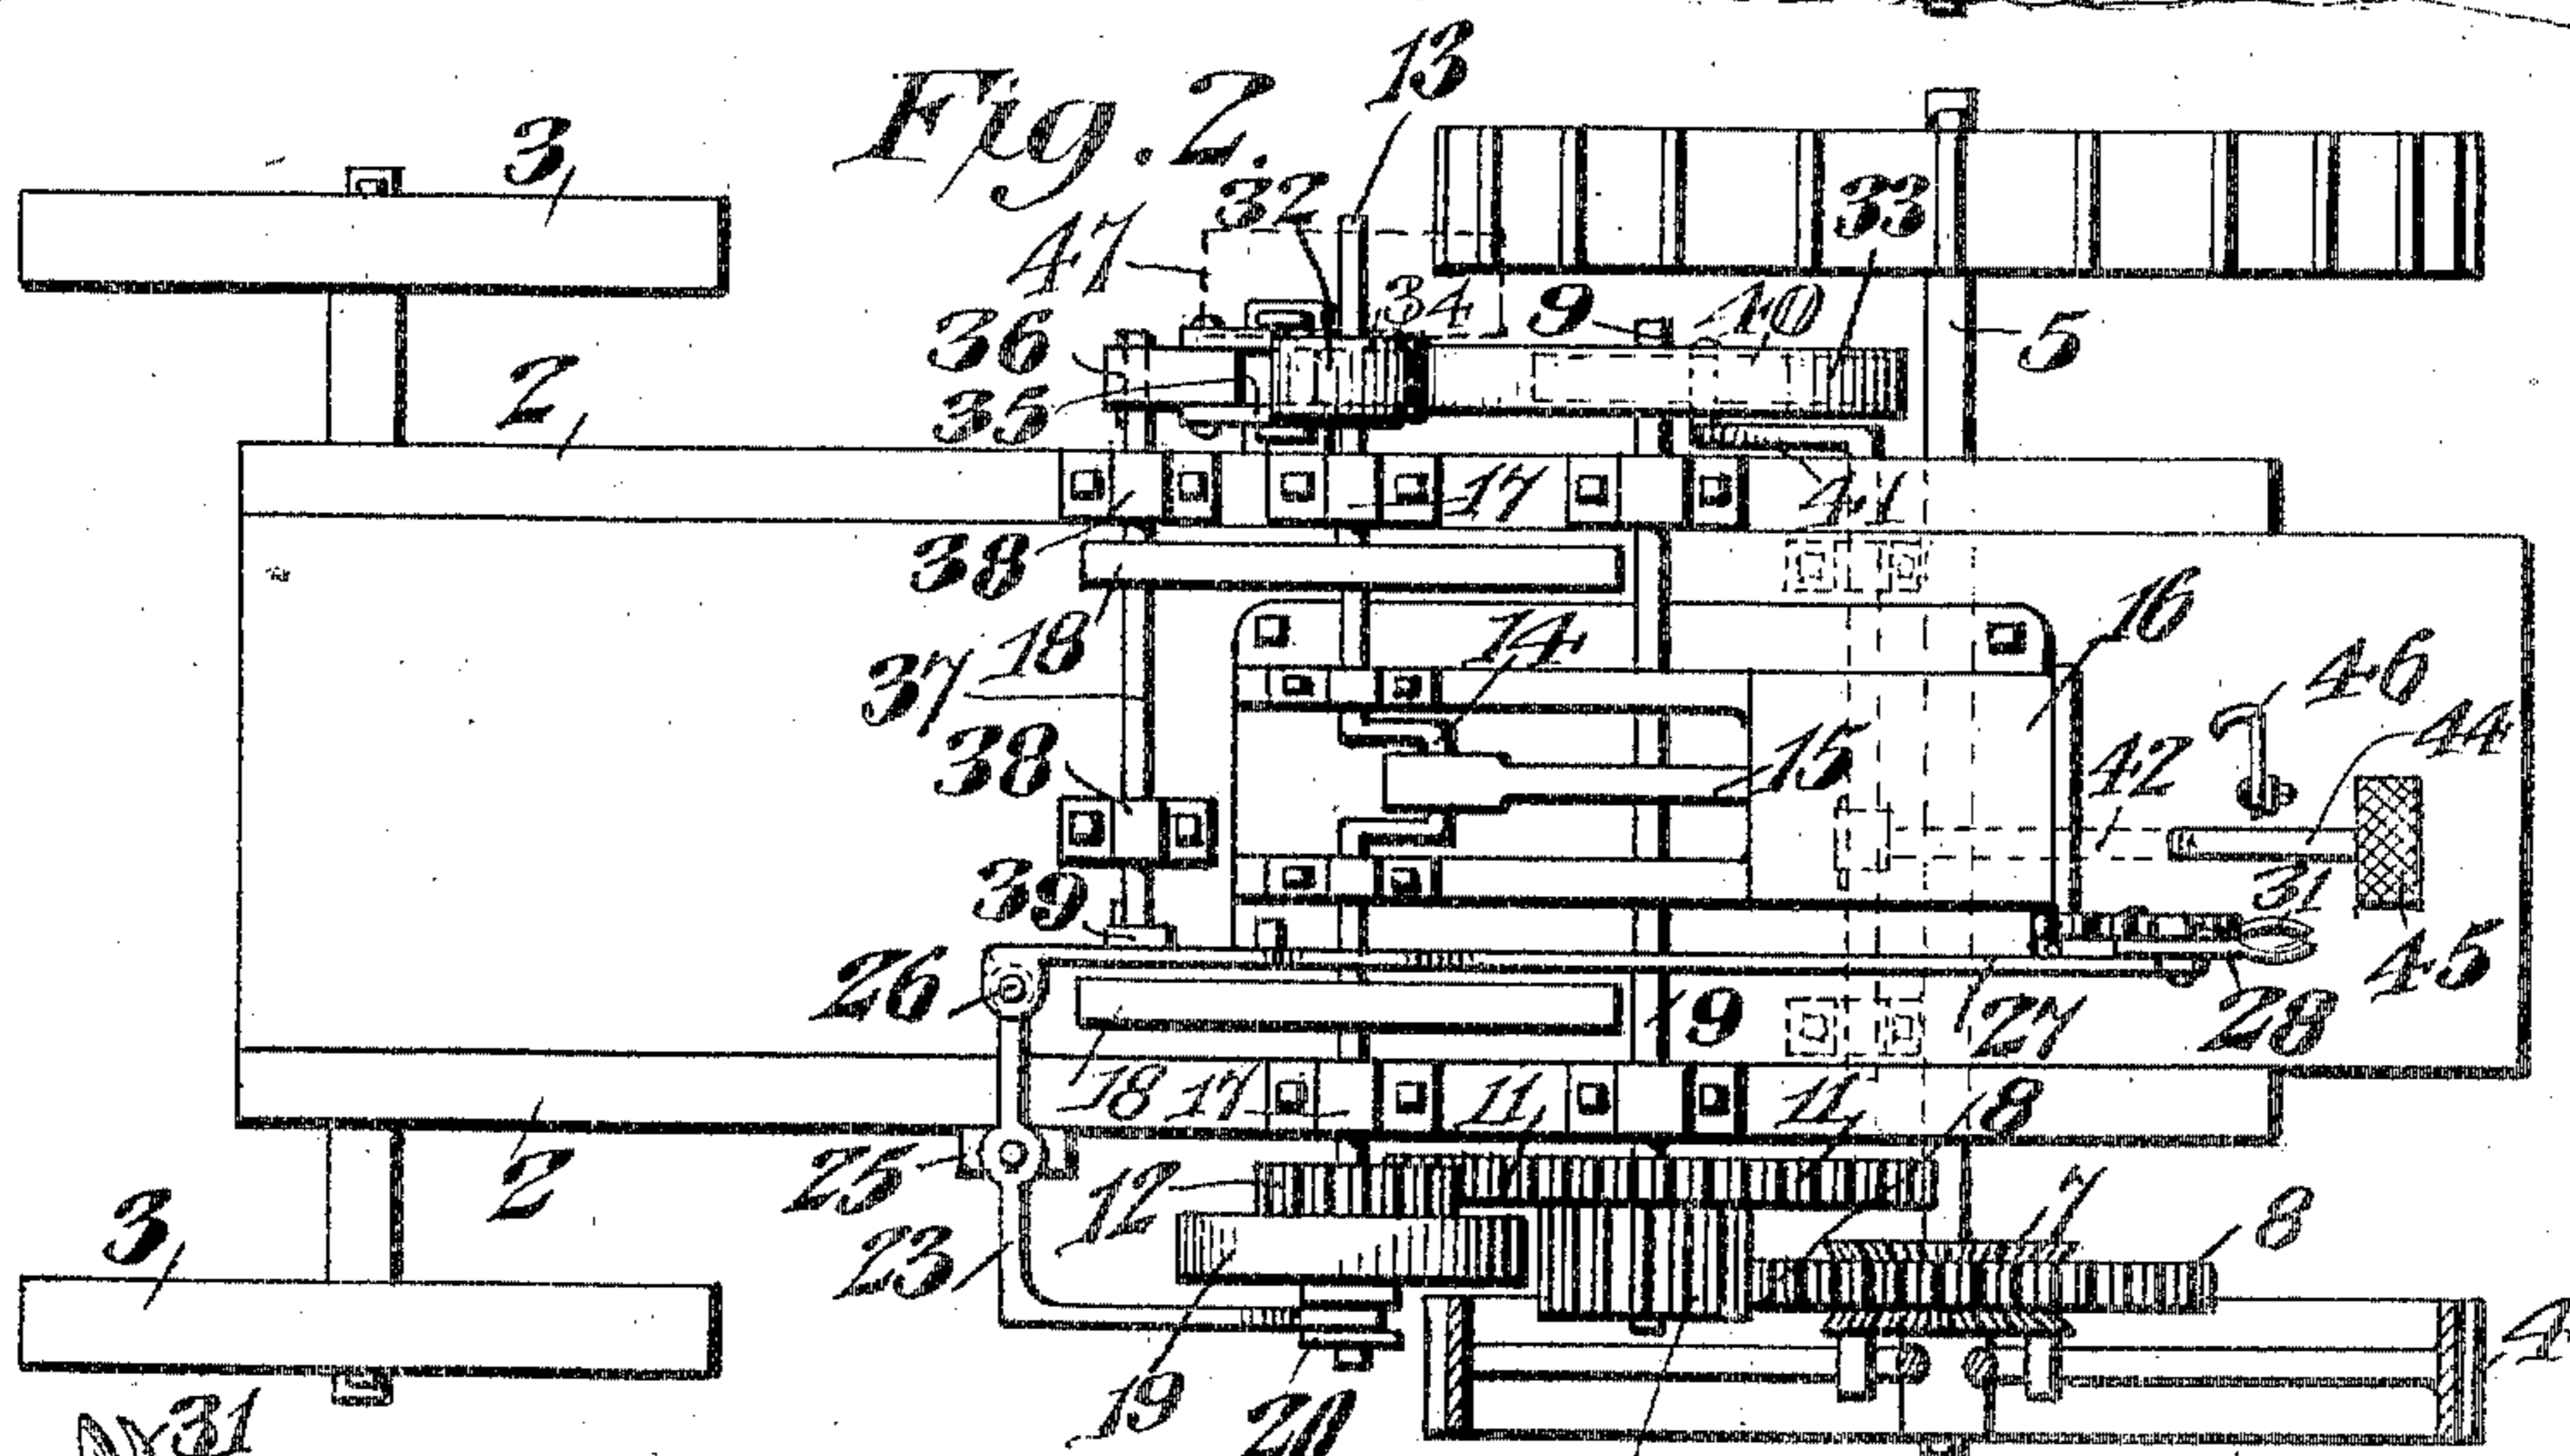 Fig. 2.
13
3
32
33
47
34
9
40
5
36
35
2
17
41
38
18
14
16
37
46
44
38
15
42
39
31
45
26
9
27
28
18
17
11
11
8
25
2
12
7
8
3
23
4
19
20
31